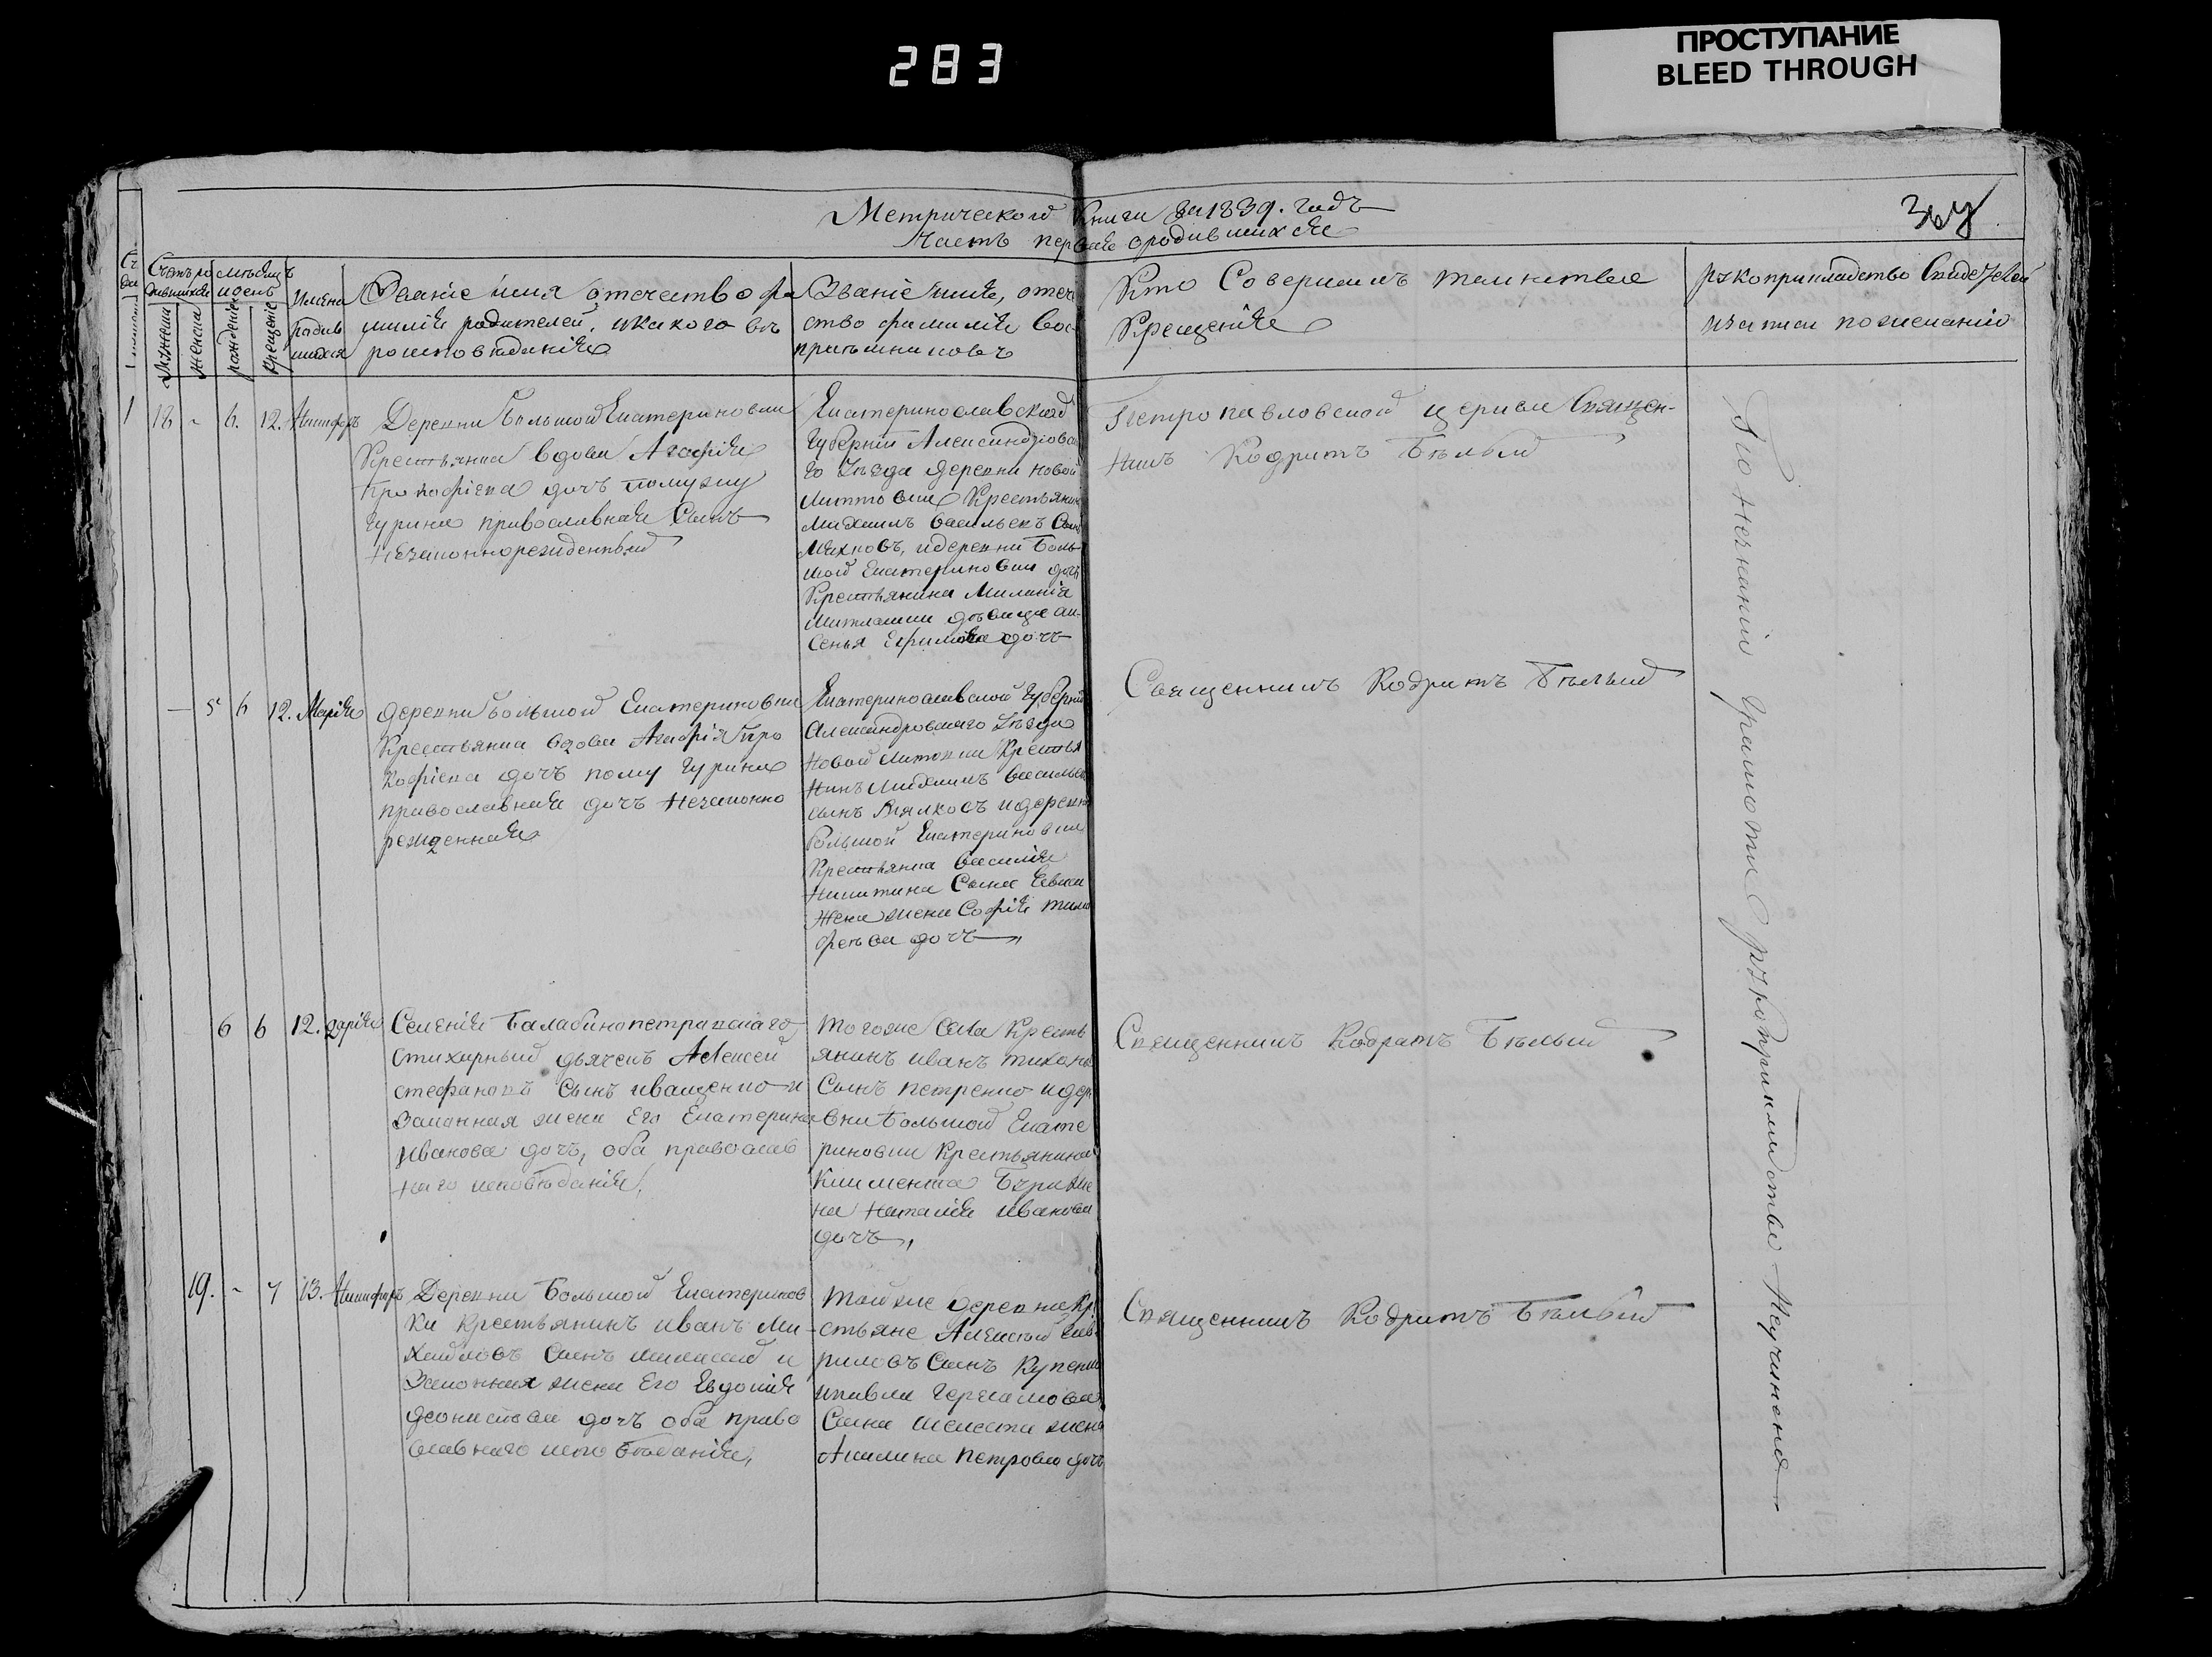 283
ПРОСТУПАНИЕ
BLEED THROUGH
Метрической Книги за 1839. годъ
Часть первая о родившихся
Мужеска
Женска
рожденіе
крещеніе
Имена
родив
шихся
Званіе имя отечество фа
милія родителей, и какого въ
роисповѣданія
Званіе имя, отече
ство фамилія Вос
пріемниковъ
Кто Совершилъ таинства
Крещенія
рукоприкладство Свидетелей
записи по желанію
1 18 - 6. 12. Никифоръ
Деревни Большой Екатериновки
Крестьянка вдова Агафія
Прокофіева дочь по мужу
Гурина православная Сынъ
Незаконнорожденный
Екатеринославской
Губерніи Александровска
го Уезда деревни новой
Крестьянинъ
Михаилъ Васильевъ Сынъ
и деревни Боль
шой Екатериновки дочь
Крестьянина
девица ак
сенья Ефимова дочь
Петропавловской церкви Священ-
никъ Кодратъ Бѣлый
- 5 6 12. Марія
деревни большой Екатериновки
Крестьянка вдова Агафія Про
кофіева дочь по мужу Гурина
православная дочь незаконно
рожденная
Екатеринославской Губерніи
Александровскаго Уезда
Новой Крестья
нинъ Михаилъ Васильевъ
сынъ и деревни
большой Екатериновки
Крестьянина Василія
Никитина Сына
жена Софія Тимо
феева дочь
Священникъ Кодратъ Бѣлый
6 6 12. Дарія
Селенія Балабинопетровскаго
стихарный дьячекъ Алексей
стефановъ сынъ иващенко и
Законная жена Его Екатерина
Иванова дочь, оба православ
наго исповѣданія,
того же Села Кресть
янинъ иванъ тихоно
Сынъ петренко и дере
вни Большой Екате
риновки Крестьянина
Климента же
на Наталія Иванова
дочь,
Священникъ Кодратъ Бѣлый
19. - 7 13. Никифоръ
Деревни Большой Екатеринов
ки Крестьянинъ иванъ Ми-
хайловъ Сынъ и
Законная жена Его Евдокія
деонисіева дочь оба право
славнаго исповѣданія,
той же деревни Кре
стьяне Алексей Гав
риловъ Сынъ
и павла Герасимова
Сына жена
Акилина Петрова дочь
Священникъ Кодратъ Бѣлый
По незнанію Грамоты рукоприкладства Неучинено